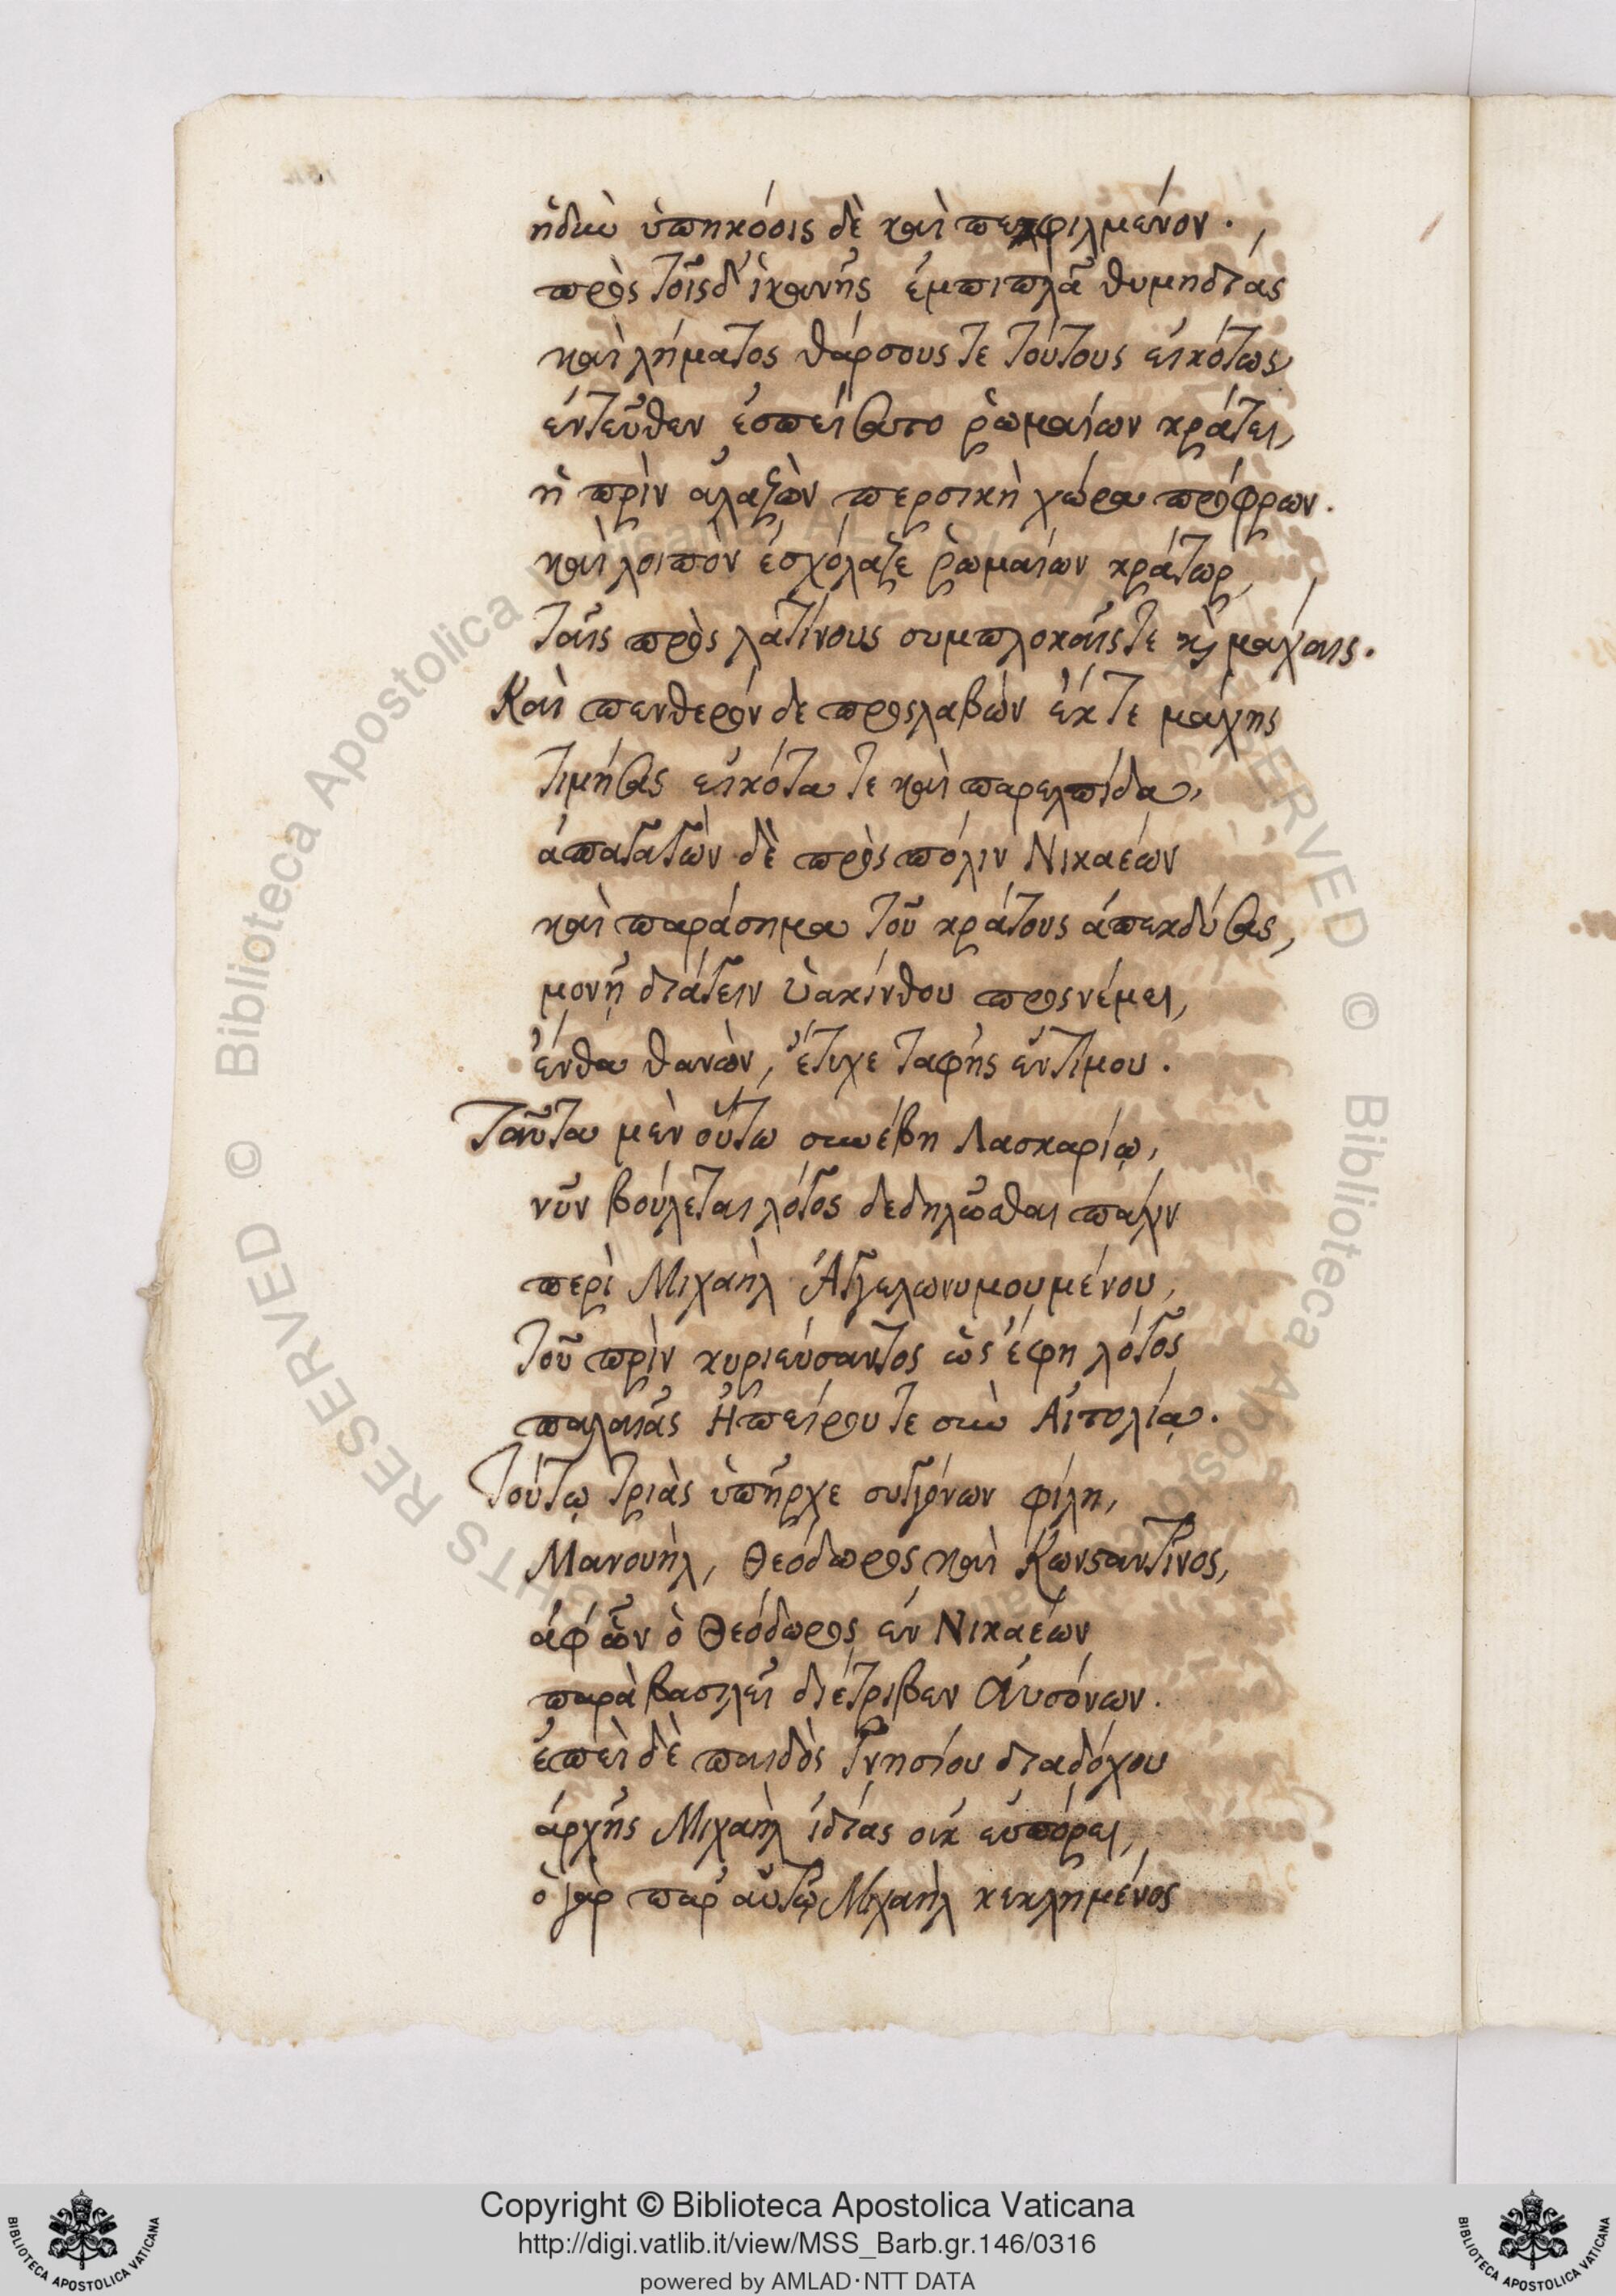 ἡδὺν ὑπηκόοις δὲ καὶ πεφιλμένον.
πρὸς τοῖσδ' ἱκανῆς ἐμπιπλᾷ θυμηδίας
καὶ λήματος θάρσους τε τούτους εἰκότως
ἐντεῦθεν ἐσπείσατο ῥωμαίων κράτει,
ἡ πρὶν ἀλαζὼν περσικὴ χώρα πρόφρων.
καὶ λοιπὸν ἐσχόλαζε ῥωμαίων κράτωρ,
ταῖς πρὸς λατίνους συμπλοκαῖς τε καὶ μάχαις.
Καὶ πενθερόν δε προςλαβὼν ἐκ τε μάχης
τιμήσας εἰκότα τε καὶ παρελπίδα,
ἀπαγαγὼν δὲ πρὸς πόλιν Νικαέων
καὶ παράσημα τοῦ κράτους ἀπεκδύσας,
μονῇ διάγειν ὑακίνθου προςνέμει,
ἔνθα θανὼν, ἔτυχε ταφῆς ἐντίμου.
Ταῦτα μὲν οὕτω συνέβη Λασκαρίῳ,
νῦν βούλεται λόγος δεδηλῶσθαι πάλιν
περὶ Μιχαὴλ Ἀγγελωνυμουμένου,
τοῦ πρὶν κυριεύσαντος ὡς ἔφη λόγος
παλαιᾶς Ἠπείρου τε σὺν Αἰτολίᾳ.
Τούτῳ τριὰς ὑπῆρχε συγγόνων φίλη,
Μανουὴλ, Θεόδωρος καὶ Κωνσταντῖνος,
ἀφ' ὧν ὁ Θεόδωρος ἐν Νικαέων
παρὰ βασιλεῖ διέτριβεν Αὐσόνων.
ἐπεὶ δὲ παιδὸς γνησίου διαδόχου
ἀρχῆς Μιχαὴλ ἰδίας οὐκ εὐπόρει,
ὁ γὰρ παρ' αὐτῷ Μιχαὴλ κεκλημένος
Copyright © Biblioteca Apostolica Vaticana
http://digi.vatlib.it/view/MSS_Barb.gr.146/0316
powered by AMLAD·NTT DATA